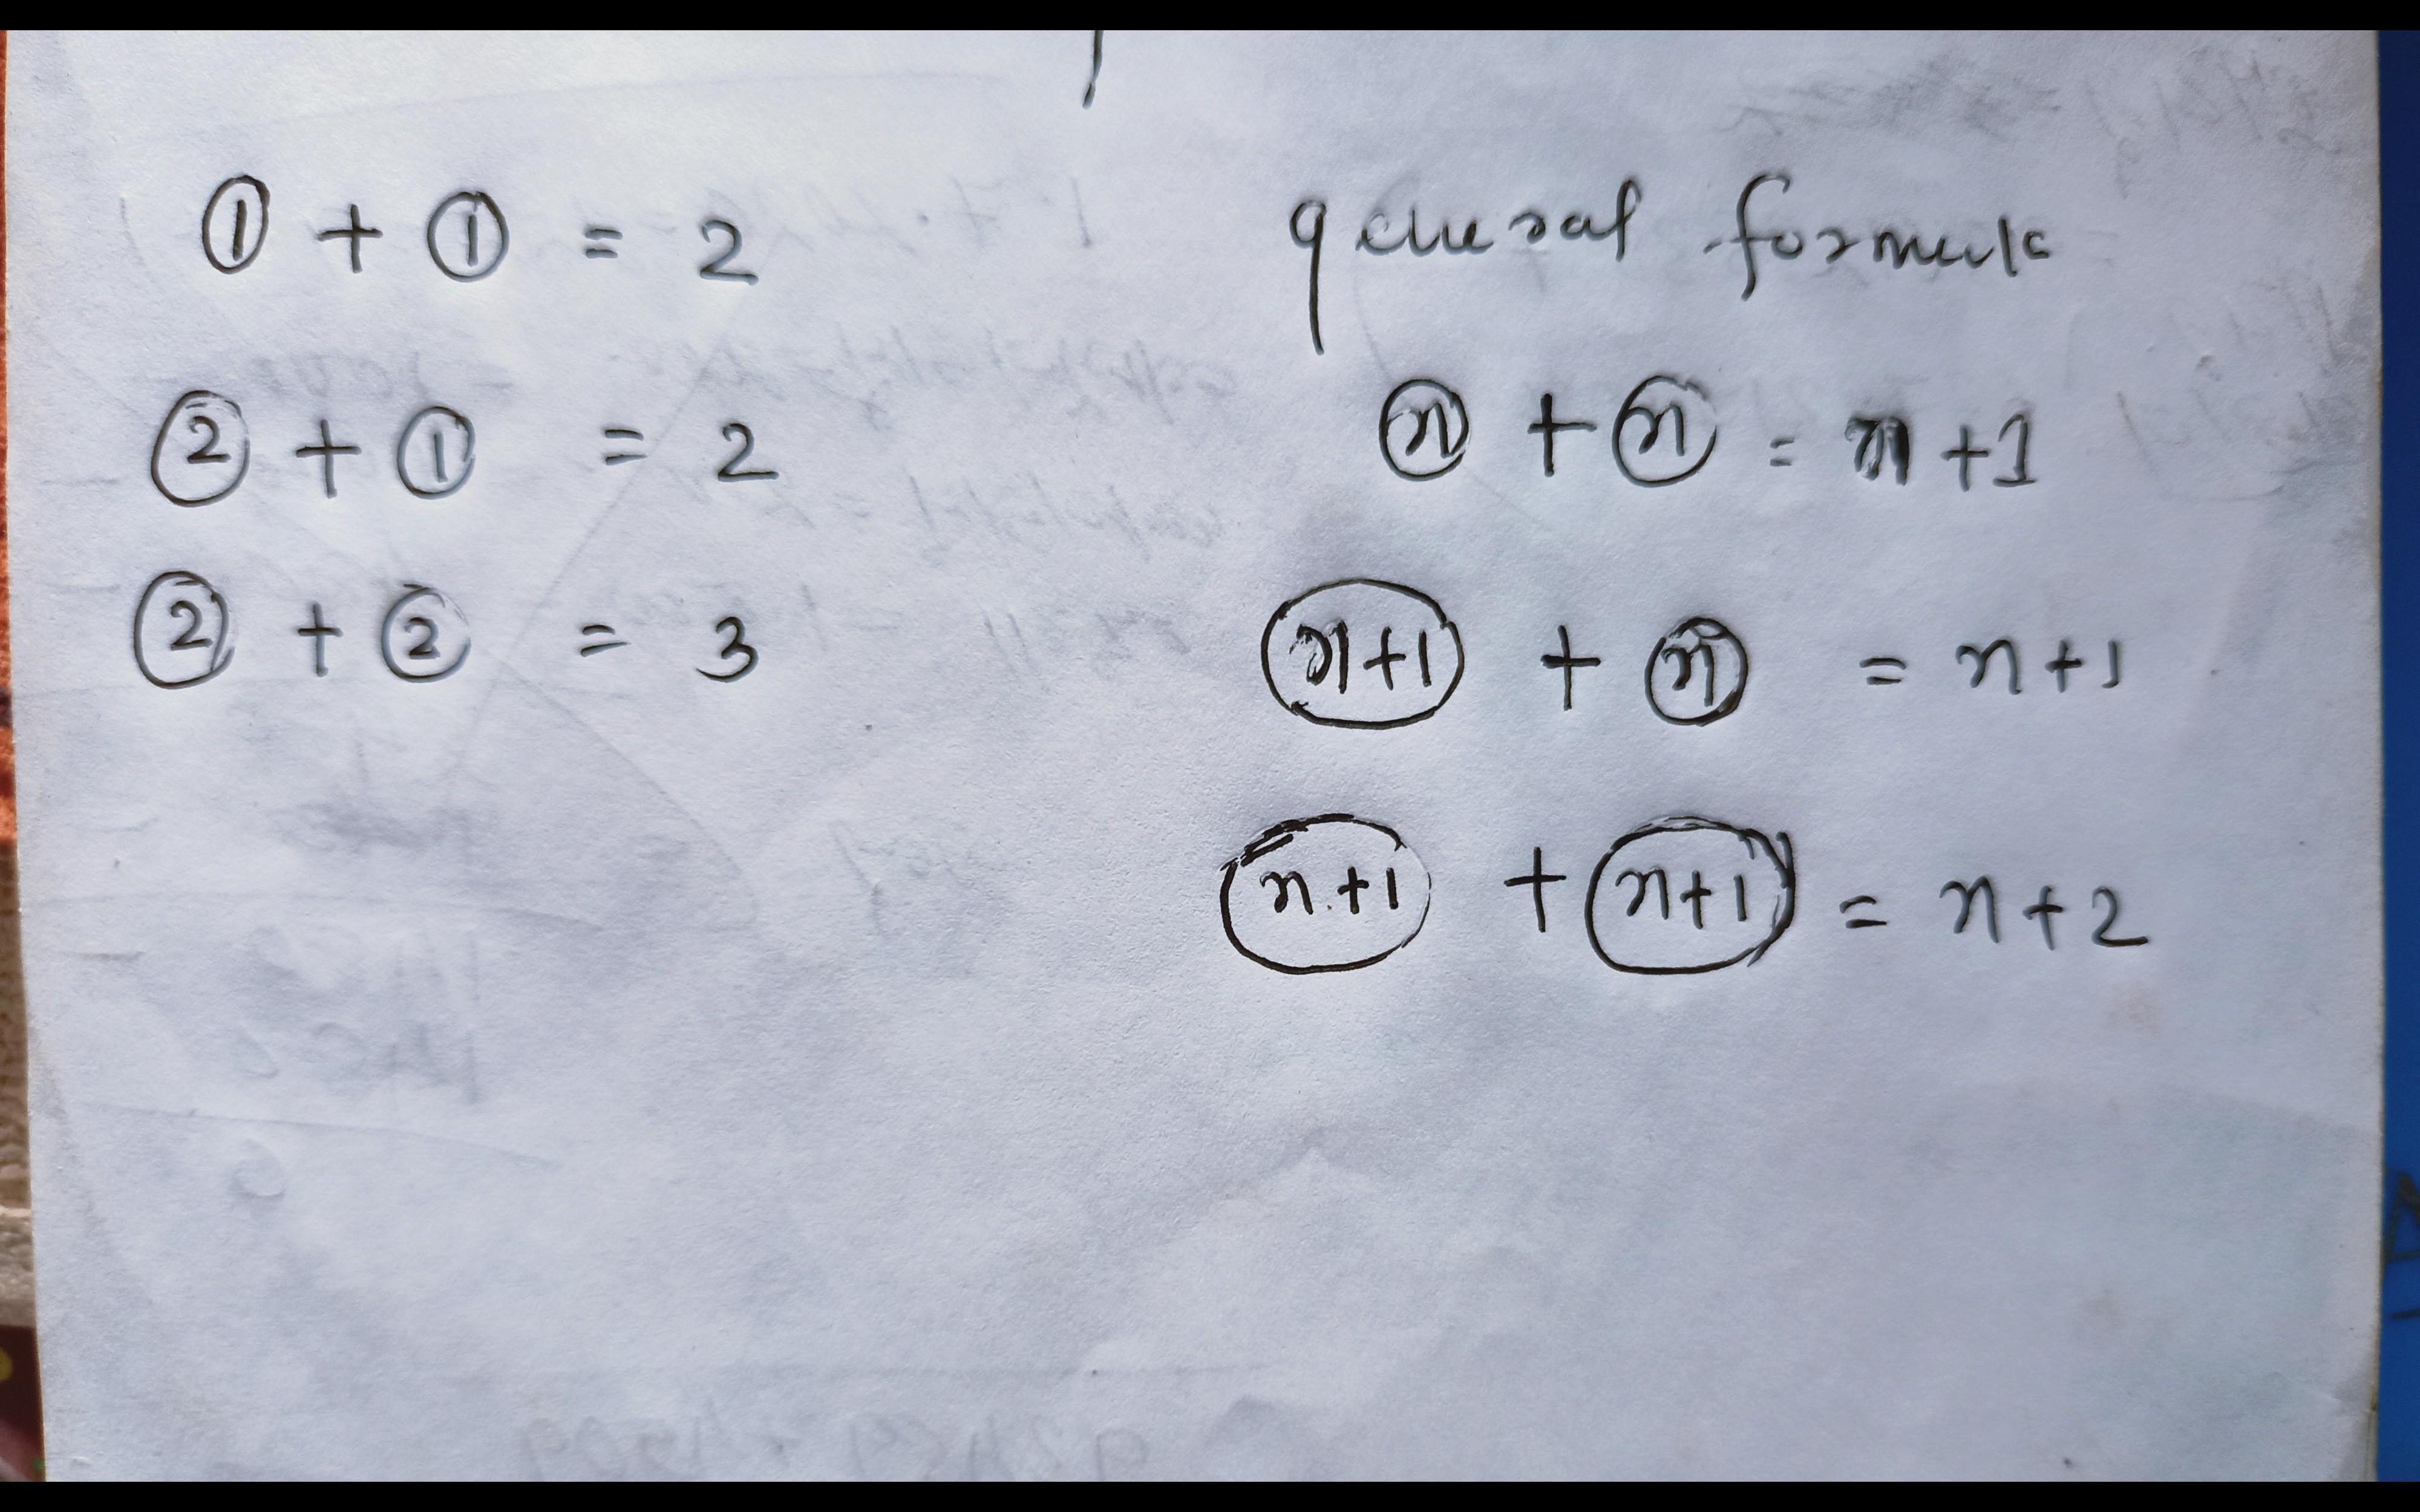 ① + ① = 2
② + ① = 2
② + ② = 3
general formula
ⓝ + ⓝ = n + 1
(n+1) + ⓝ = n + 1
(n+1) + (n+1) = n + 2